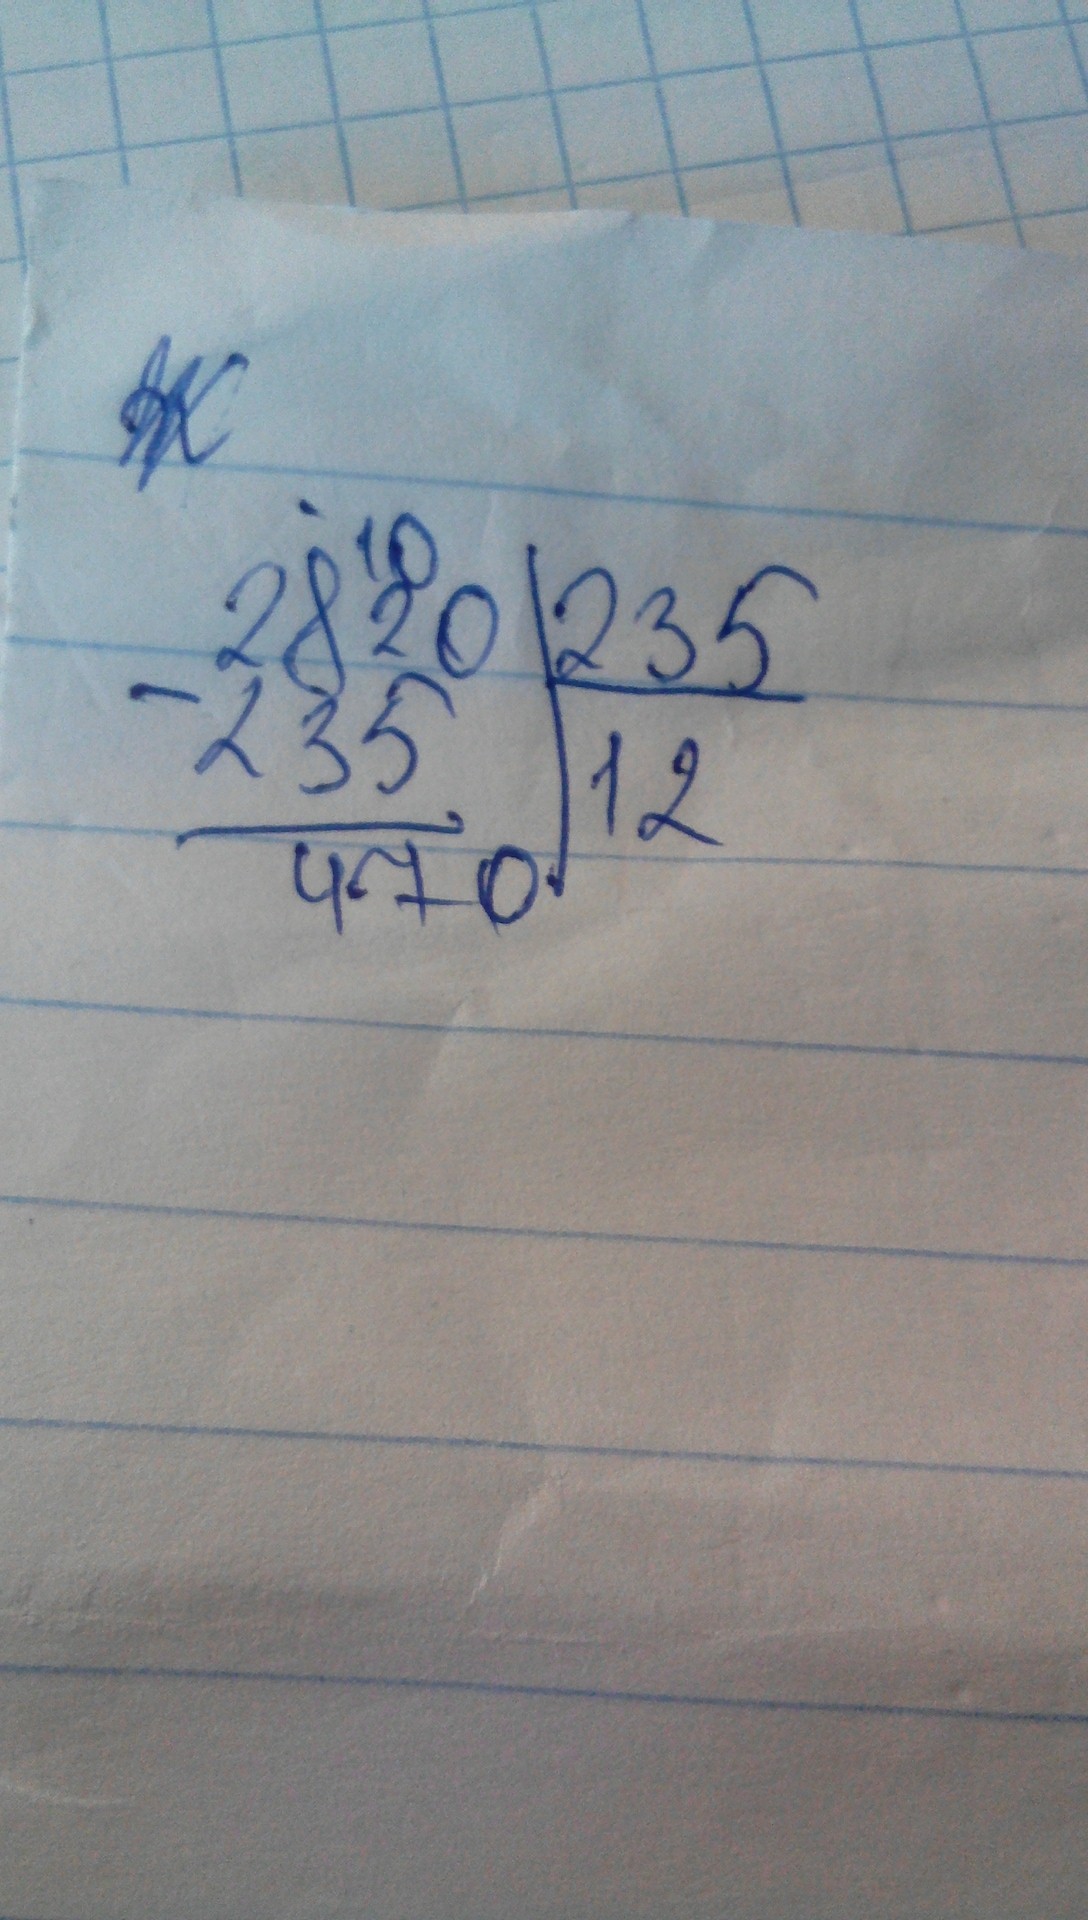 10
2820 235
- 235 12
470